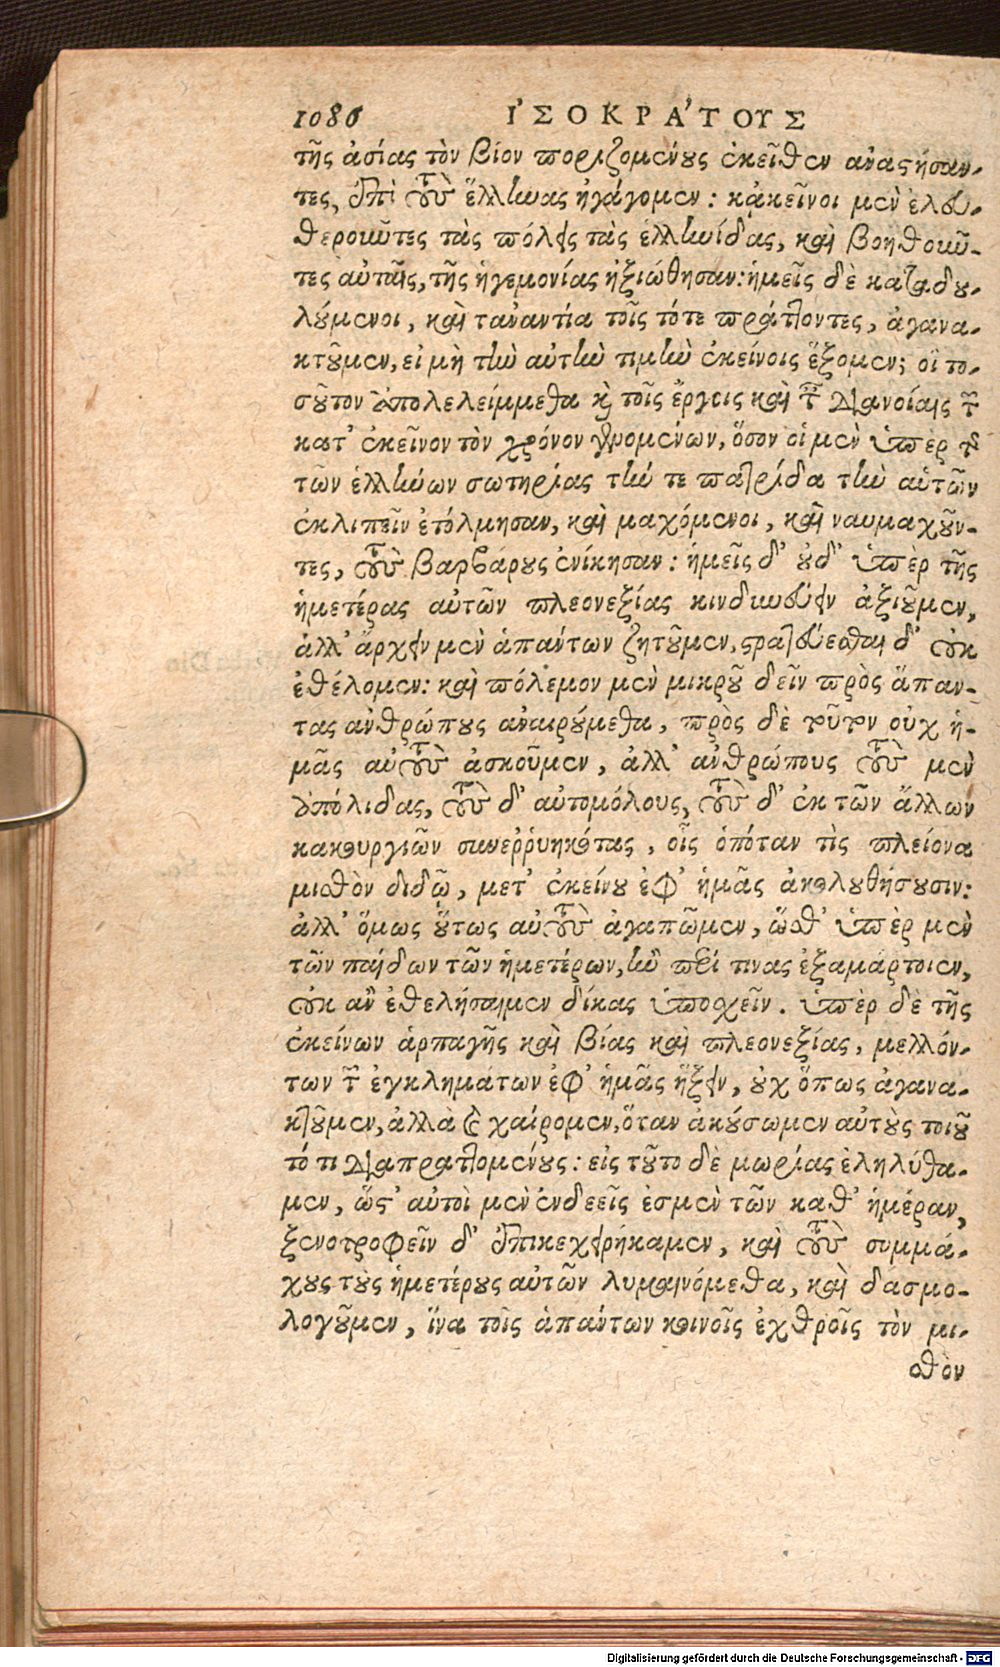 1086 ἸΣΟΚΡΑΤΟΥΣ
τῆς ἀσίας τὸν βίον ποριζομένους ἐκεῖθεν ἀναστήσαν-
τες, ἐπὶ τοὺς ἕλληνας ἠγάγομεν : κἀκεῖνοι μὲν ἐλευ-
θεροῦντες τὰς πόλεις τὰς ἑλληνίδας, καὶ βοηθοῦν-
τες αὐταῖς, τῆς ἡγεμονίας ἠξιώθησαν: ἡμεῖς δὲ καταδου-
λούμενοι, καὶ τἀναντία τοῖς τότε πράττοντες, ἀγανα-
κτοῦμεν, εἰ μὴ τὴν αὐτὴν τιμὴν ἐκείνοις ἕξομεν; οἳ το-
σοῦτον ἀπολελείμμεθα καὶ τοῖς ἔργοις καὶ ταῖς διανοίαις τῶν
κατ' ἐκεῖνον τὸν χρόνον γενομένων, ὅσον οἱ μὲν ὑπὲρ τῆς
τῶν ἑλλήνων σωτηρίας τήν τε πατρίδα τὴν αὑτῶν
ἐκλιπεῖν ἐτόλμησαν, καὶ μαχόμενοι, καὶ ναυμαχοῦν-
τες, τοὺς βαρβάρους ἐνίκησαν : ἡμεῖς δ' οὐδ' ὑπὲρ τῆς
ἡμετέρας αὐτῶν πλεονεξίας κινδυνεύειν ἀξιοῦμεν,
ἀλλ' ἄρχειν μὲν ἁπάντων ζητοῦμεν, στρατεύεσθαι δ' οὐκ
ἐθέλομεν: καὶ πόλεμον μὲν μικροῦ δεῖν πρὸς ἅπαν-
τας ἀνθρώπους ἀναιρούμεθα, πρὸς δὲ τοῦτον οὐχ ἡ-
μᾶς αὐτοὺς ἀσκοῦμεν, ἀλλ' ἀνθρώπους τοὺς μὲν
ἀπόλιδας, τοὺς δ' αὐτομόλους, τοὺς δ' ἐκ τῶν ἄλλων
κακουργιῶν συνερρυηκότας, οἷς ὁπόταν τὶς πλείονα
μισθὸν διδῷ, μετ' ἐκείνου ἐφ' ἡμᾶς ἀκολουθήσουσιν:
ἀλλ' ὅμως οὕτως αὐτοὺς ἀγαπῶμεν, ὥσθ' ὑπὲρ μὲν
τῶν παίδων τῶν ἡμετέρων, ἢν περί τινας ἐξαμάρτοιεν,
οὐκ ἂν ἐθελήσαιμεν δίκας ὑποσχεῖν. ὑπὲρ δὲ τῆς
ἐκείνων ἁρπαγῆς καὶ βίας καὶ πλεονεξίας, μελλόν-
των τῶν ἐγκλημάτων ἐφ' ἡμᾶς ἥξειν, οὐχ ὅπως ἀγανα-
κτοῦμεν, ἀλλὰ καὶ χαίρομεν, ὅταν ἀκούσωμεν αὐτοὺς τοιοῦ
τό τι διαπραττομένους : εἰς τοῦτο δὲ μωρίας ἐληλύθα-
μεν, ὥστ' αὐτοὶ μὲν ἐνδεεῖς ἐσμὲν τῶν καθ' ἡμέραν,
ξενοτροφεῖν δ' ἐπικεχειρήκαμεν, καὶ τοὺς συμμά-
χους τοὺς ἡμετέρους αὐτῶν λυμαινόμεθα, καὶ δασμο-
λογοῦμεν, ἵνα τοῖς ἁπάντων κοινοῖς ἐχθροῖς τὸν μι-
σθὸν
Digitalisierung gefördert durch die Deutsche Forschungsgemeinschaft - DFG